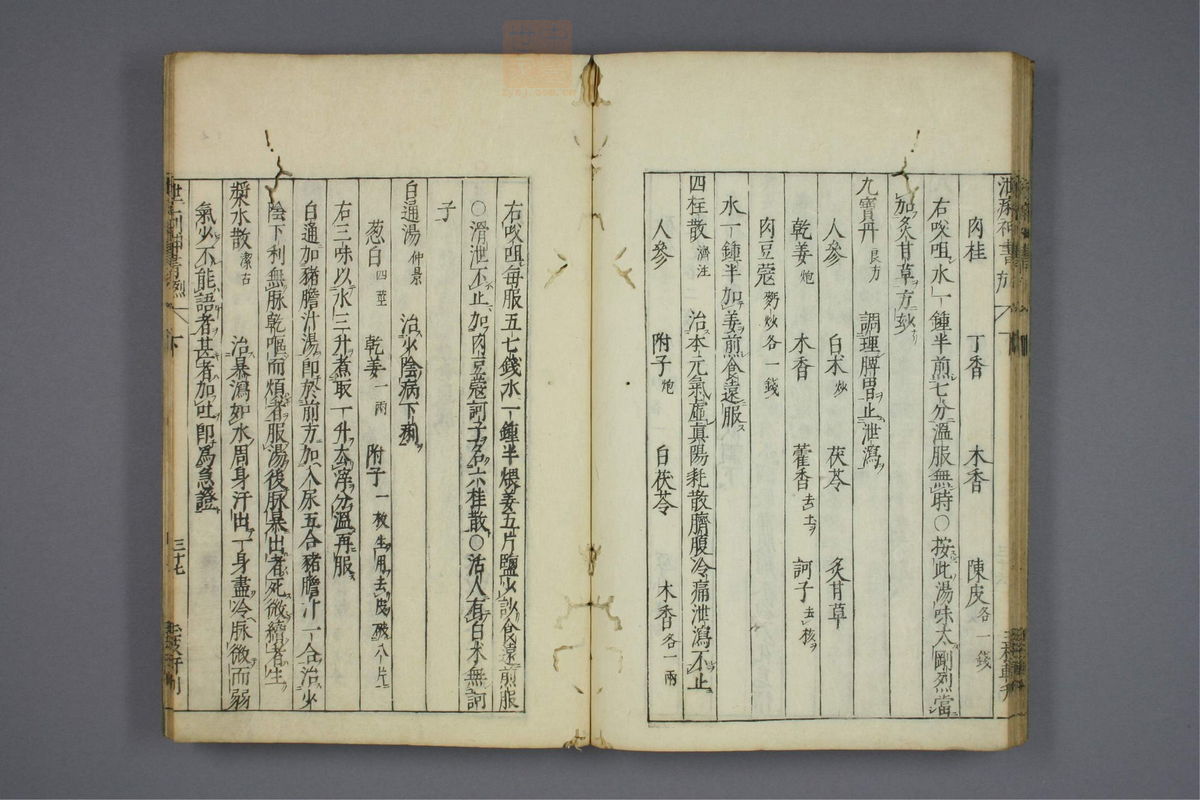 肉桂 丁香 木香 陳皮各一錢
右㕮咀水一鍾半煎七分溫服無時○按此湯味太剛烈當
加炙甘草方玅
九寶丹良方 調理脾胃止泄瀉
人參 白朮炒 茯苓 炙甘草
乾姜炮 木香 藿香去土 訶子去核
肉豆蔻麪炒各一錢
水一鍾半加姜煎食遠服
四柱散濟注 治本元氣虛真陽耗散臍腹冷痛泄瀉不止
人參 附子炮 白茯苓 木香各一兩
右㕮咀每服五七錢水一鍾半煨姜五片鹽少許食遠煎服
○滑泄不止加肉豆蔻訶子名六柱散○活人有白朮無訶
子
白通湯仲景 治少陰病下痢
葱白四莖 乾姜一兩 附子一枚生用去皮破八片
右三味以水三升煮取一升去滓分溫再服
白通加豬膽汁湯即於前方加入尿五合豬膽汁一合治少
陰下利無脉乾嘔而煩者服湯後脉暴出者死微續者生
漿水散潔古 治暴瀉如水周身汗出一身盡冷脉微而弱
氣少不能語者甚者加吐即為急證
三十七